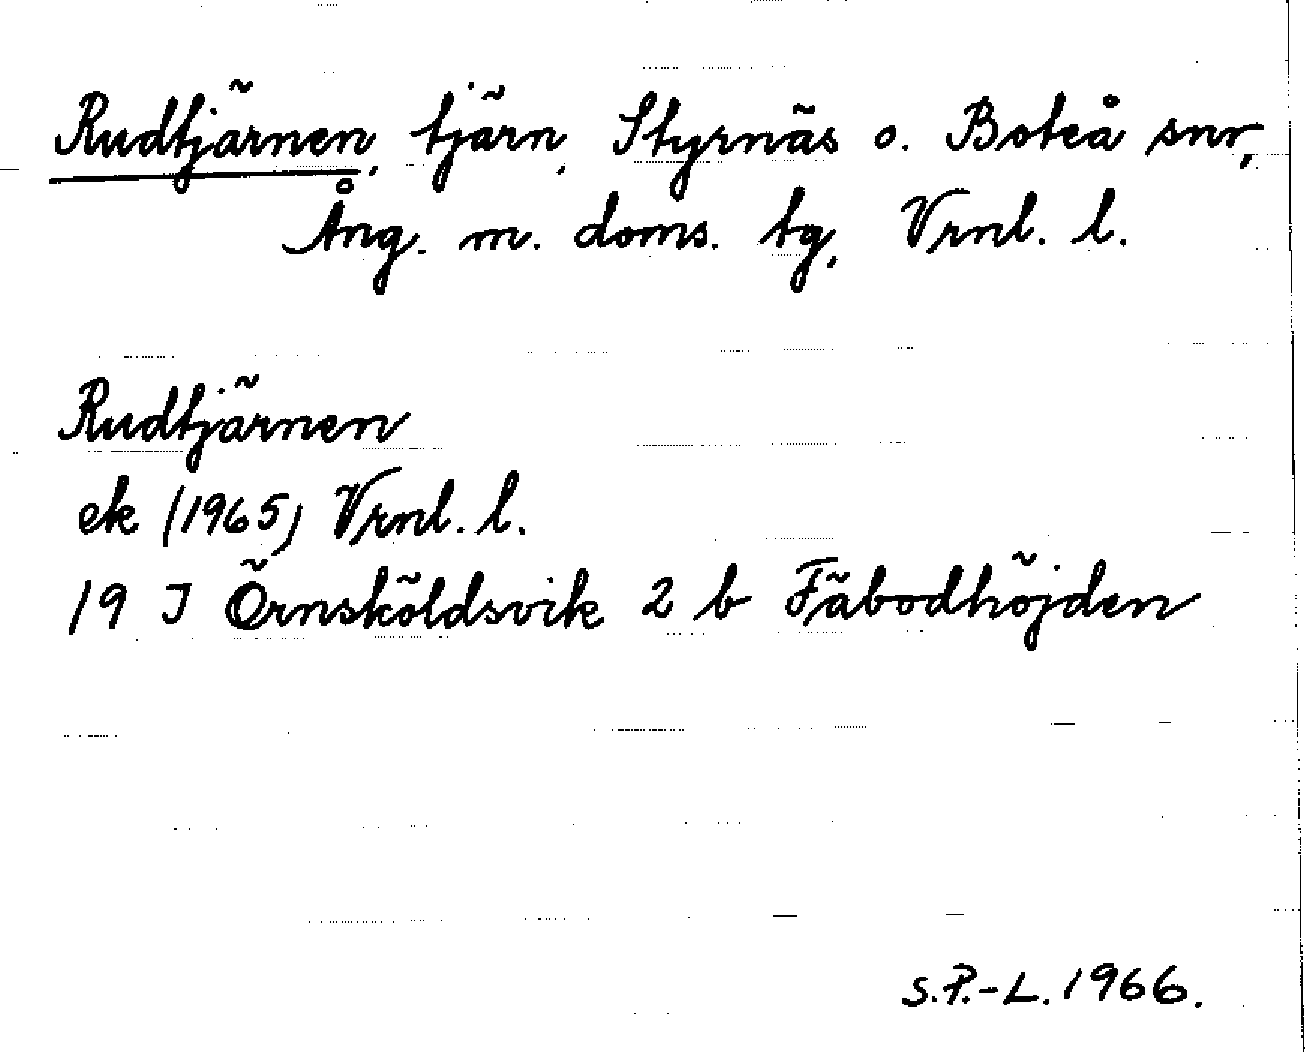 Rudtjärnen, tjärn, Styrnäs o. Boteå snr,
Ång. m. doms. tg, Vrnl. l.
Rudtjärnen
ek (1965) Vrnl. l.
19 J Örnsköldsvik 2 b Fäbodhöjden
S.P.-L. 1966.